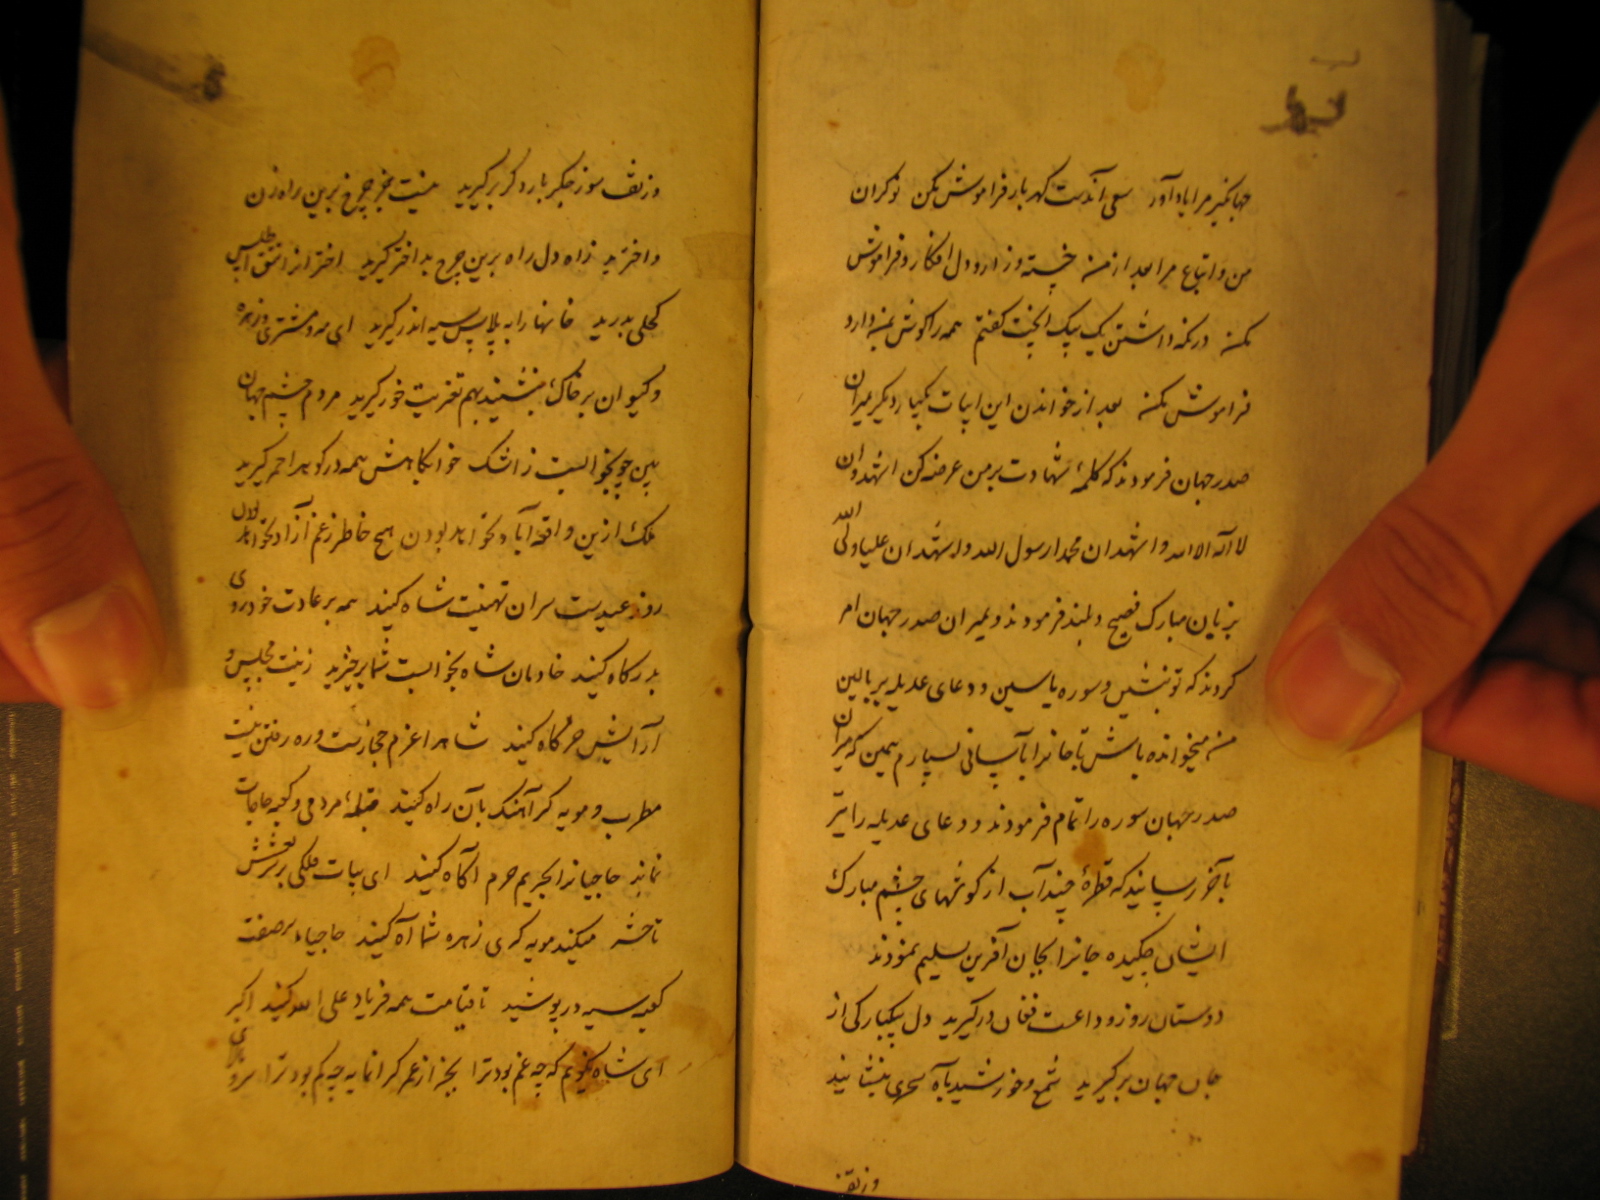 جهانگیر مرا یاد آور سعی آندست گهربار فراموش مکن نوکران
من و اتباع مرا بعد از من خسته و زار و دل افکار و فراموش
مکن در نگه داشتن یک بیک گفتم همه را گوش بمن دار و
فراموش مکن بعد از خواندن این ابیات یکبار دیگر میران
صدر جهان فرمودند که کلمهٔ شهادت بر من عرضه کن اشهد ان
لا اله الا الله و اشهد ان محمدا رسول الله و اشهد ان علیا ولی الله
بزبان مبارک فصیح و بلند فرمودند و بمیران صدر جهان امر
کردند که تو بنشین و سوره یاسین و دعای عدیله بر بالین
من میخوانده باش تا جانرا بآسانی بسپارم همین که میران
صدر جهان سوره را تمام فرمودند و دعای عدیله را نیز
بآخر رسانیدند که قطرهٔ چند آب از گوشهای چشم مبارک
ایشان چکیده جانرا بجان آفرین تسلیم نمودند
دوستان روز وداعست فغان درگیرید دل بیکبارگی از
جان جهان برگیرید شمع خورشید بآه سحری بنشانید
وز تف
وز تف سوز جگر بار دگر برگیرید نیست جز چرخ برین راه زن
و اختر بد ز آه دل راه برین چرخ بد اختر گیرید اختران از تتق اطلس
کحلی بدرید خانها را به پلاس سیه اندر گیرید ای مه و مشتری و زهره
و کیوان بر خاک بنشینید بهم تعزیت خور گیرید مردم چشم جهان
بین چو بخوابست ز اشک خوابگاهش همه در گوهر احمر گیرید
ملک ازین واقعه آباد نخواهد بودن هیچ خاطر ز غم آزاد نخواهد
روز عیدست سران تهنیت شاه کنید همه بر عادت خود روی
بدرگاه کنید خادمان شاه بخوابست شما برخیزید زینت مجلس و
آرایش خرگاه کنید شاه را عزم حجازست و ره رفتن نیست
مطرب و مویه گر آهنگ بآن راه کنید قبلهٔ مردمی و کعبه حاجات
نماند حاجیانرا بحریم حرم آگاه کنید ای بنات فلکی بر سر نعشش
تا حشر میکنید مویه گری زهره شما آه کنید حاجیان بر صفت
کعبه سیه در پوشید تا قیامت همه فریاد علی الله کنید اکبر
ای شاه نگویم که چه غم بود ترا بجز از عمر گرانمایه چه کم بود ترا